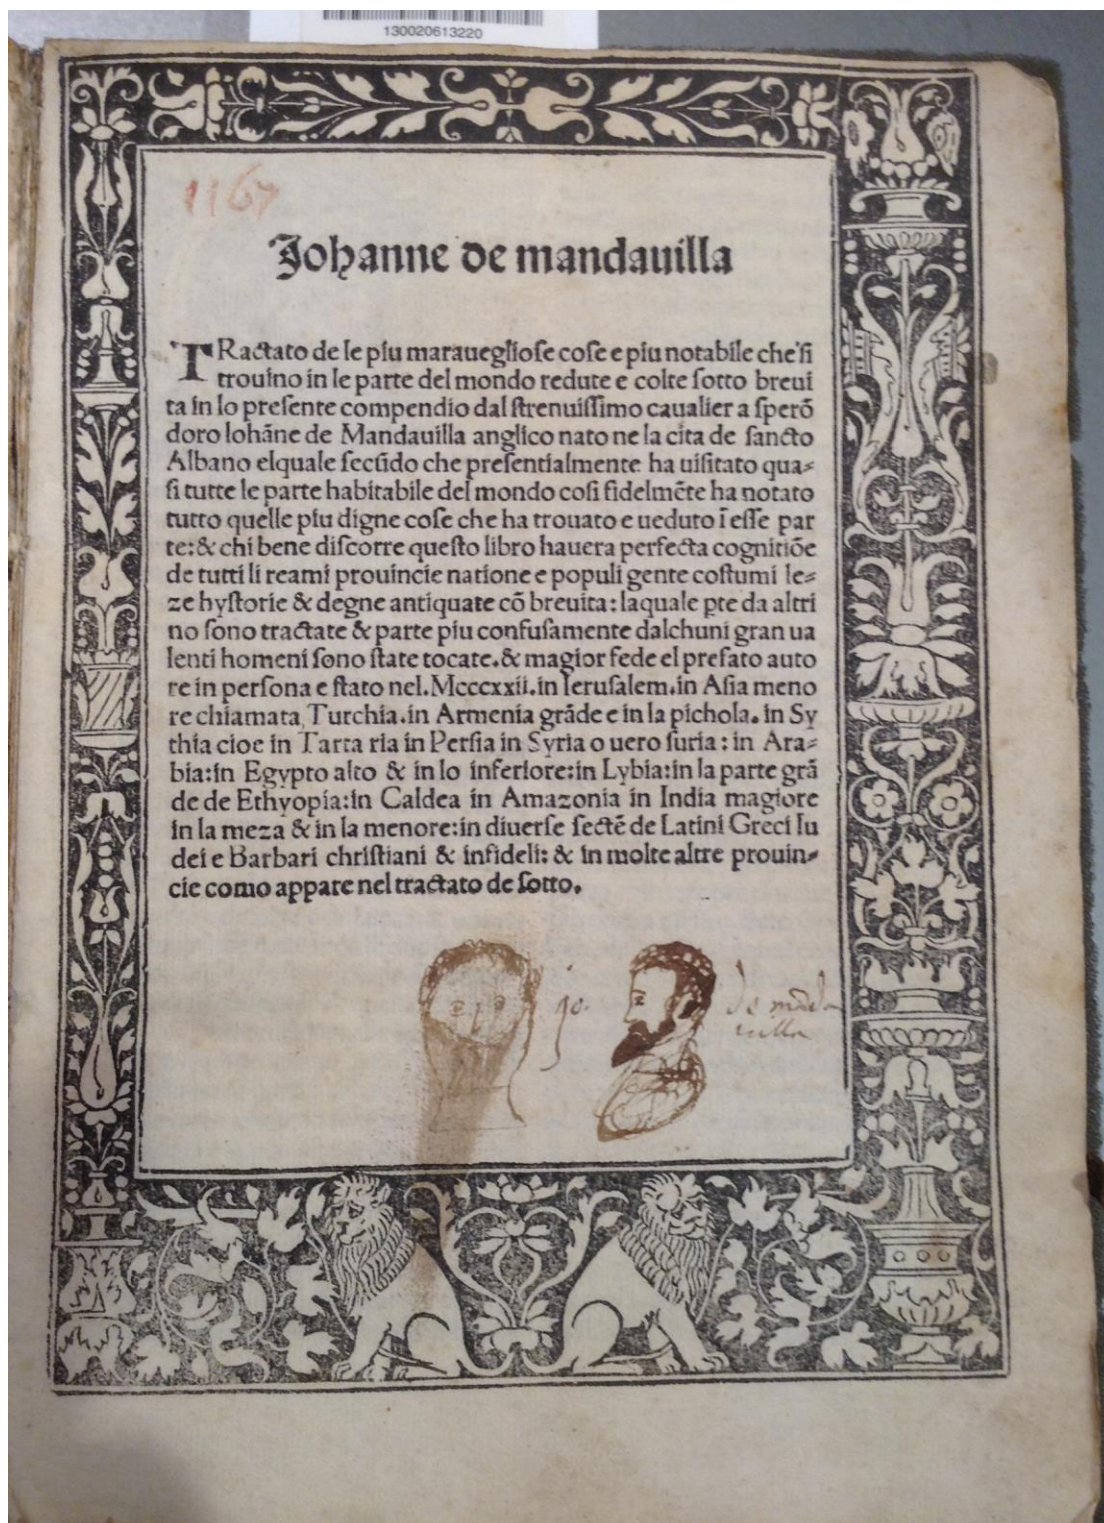 130020613220
1167
Johanne de mandauilla
TRactato de le piu marauegliose cose e piu notabile che si
trouino in le parte del mondo redute e colte sotto breui
ta in lo presente compendio dal strenuissimo caualier a sperõ
doro Iohãne de Mandauilla anglico nato ne la cita de sancto
Albano elquale secũdo che presentialmente ha uisitato qua=
si tutte le parte habitabile del mondo cosi fidelmẽte ha notato
tutto quelle piu digne cose che ha trouato e ueduto ĩ esse par
te: & chi bene discorre questo libro hauera perfecta cognitiõe
de tutti li reami prouincie natione e populi gente costumi le=
ze hystorie & degne antiquate cõ breuita: laquale pte da altri
no sono tractate & parte piu confusamente dalchuni gran ua
lenti homeni sono state tocate. & magior fede el prefato auto
re in persona e stato nel. Mcccxxii. in Ierusalem. in Asia meno
re chiamata Turchia. in Armenia grãde e in la pichola. in Sy
thia cioe in Tarta ria in Persia in Syria o uero suria: in Ara=
bia: in Egypto alto & in lo inferiore: in Lybia: in la parte grã
de de Ethyopia: in Caldea in Amazonia in India magiore
in la meza & in la menore: in diuerse sectẽ de Latini Greci Iu
dei e Barbari christiani & infideli: & in molte altre prouin=
cie como appare nel tractato de sotto.
jo. de mãda
uilla